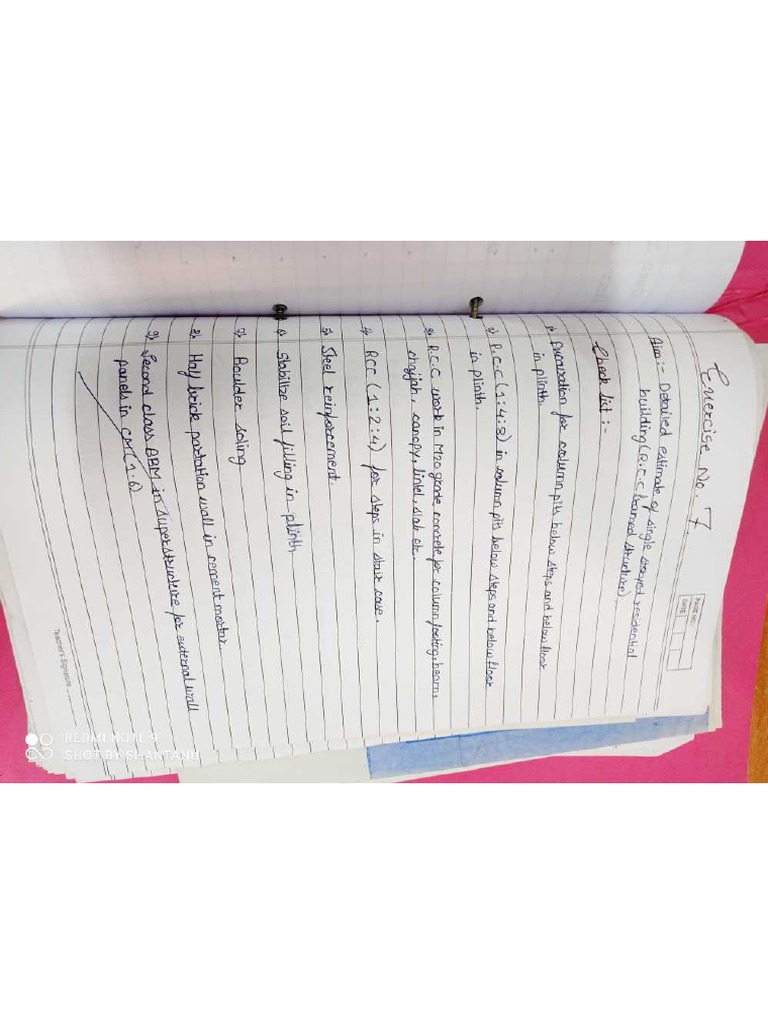 Exercise No. 7.
PAGE NO.
DATE
Aim:- Detailed estimate of single storyed residential
building (R.C.C framed structure)
Check list :-
1) Excavation for column pits below steps and below floor
in plinth.
2) P.C.C (1:4:8) in column pits below steps and below floor
in plinth.
3) R.C.C work in M20 grade concrete for column footing, beam,
chajjah, canopy, lintel, slab etc.
4) RCC (1:2:4) for steps in stair case.
5) Steel reinforcement.
6) Stabilize soil filling in plinth
7) Boulder soling
8) Half brick partation wall in cement mortar.
9) Second class BBM in superstructure for external wall
panels in CM (1:6)
Teacher's Signature
REDMI NOTE 9
SHOT BY SHANTANU